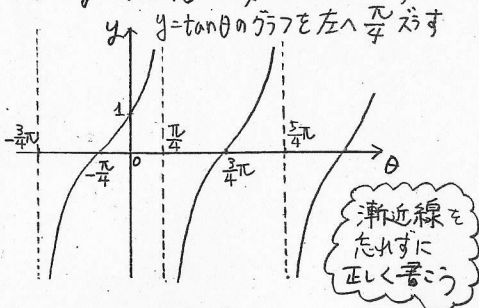 y=tanθのグラフを左へ π/4 ズラす
y
1
-3/4π
-π/4
0
π/4
3/4π
5/4π
θ
漸近線を
忘れずに
正しく書こう